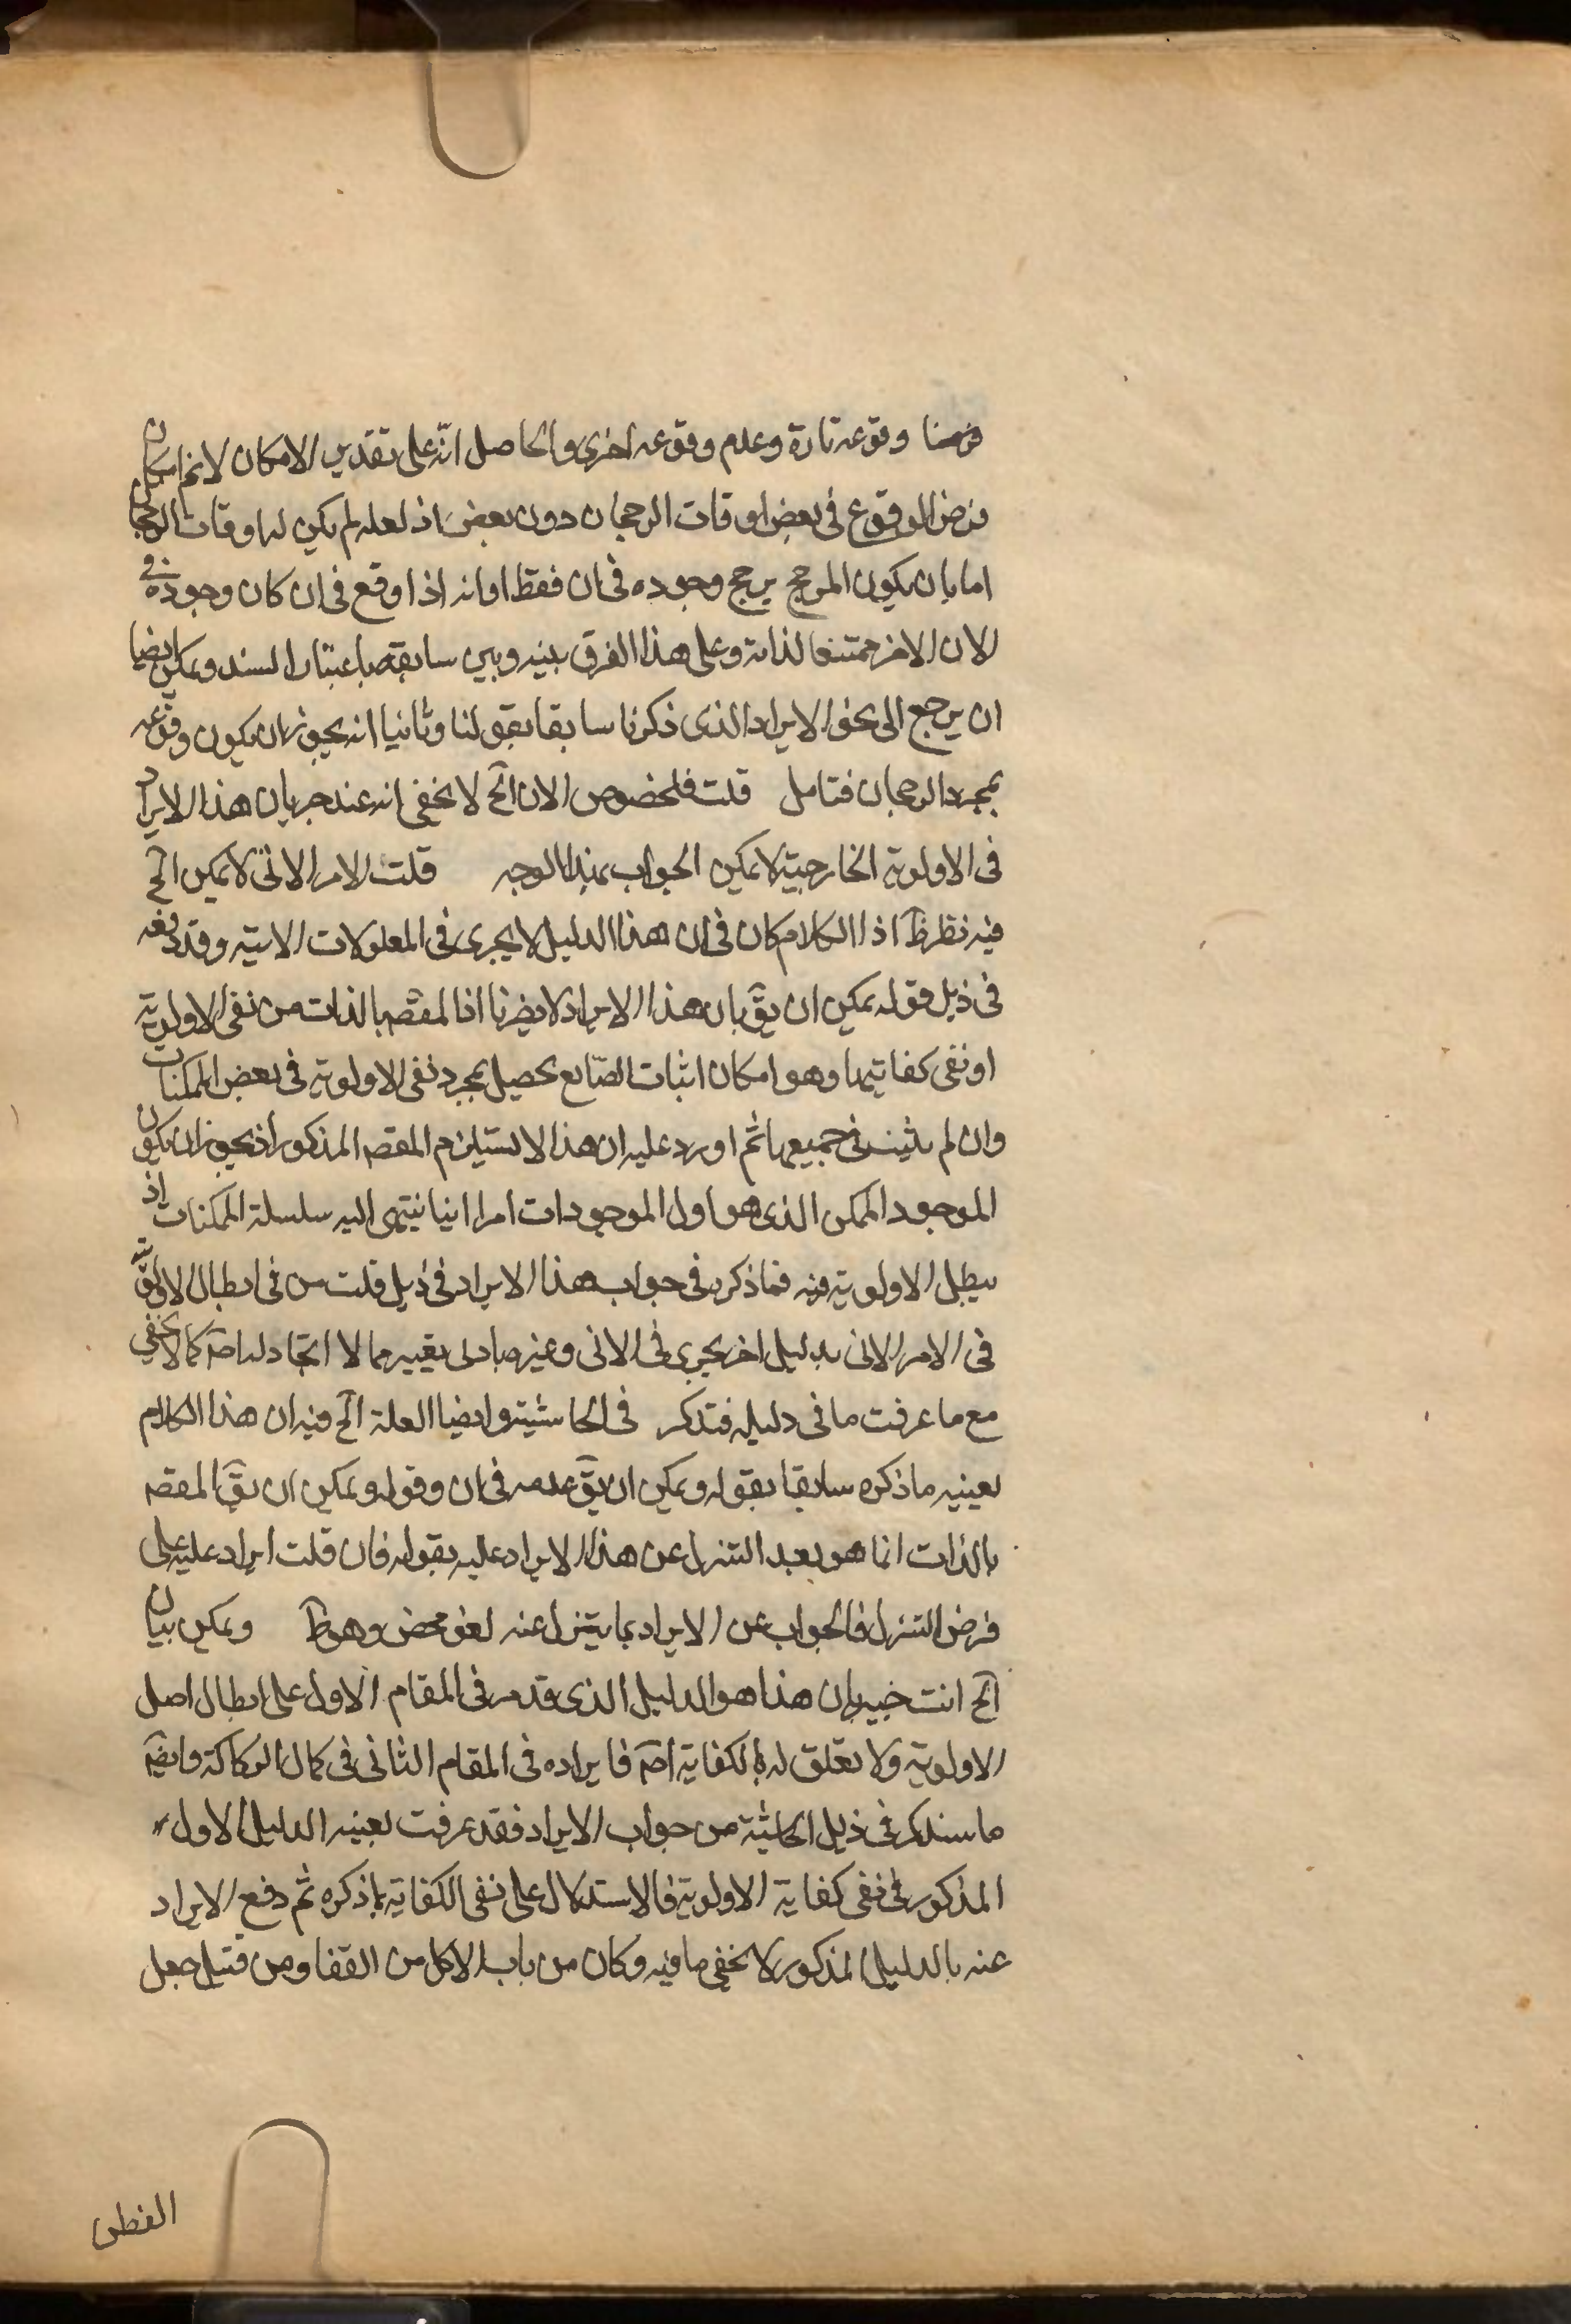 فرضنا وقوعه تارة وعدم وقوعه اخرى والحاصل انّه على تقدير الامكان لانم امكان
فرض الوقوع فى بعض اوقات الرجحان دون بعض اذ لعله لم يكن له اوقات الرجحان
اما بان يكون المرجح يرجح وجوده فى ان فقط او انه اذا وقع فى ان كان وجوده فى
الان الاخر ممتنعا لذاته وعلى هذا الفرق بينه وبين سابقه باعتبار السند ويمكن ايضا
ان يرجع الى نحو الايراد الذى ذكرنا سابقا بقولنا وثانيا انه يجوز ان يكون وقوعه
بمجرد الرجحان فتامل قلت فلخصوص الان الخ لا يخفى انه عند جريان هذا الايراد
فى الاولوية الخارجية لا يمكن الجواب بهذا الوجه قلت الامر الانى لا يمكن الخ
فيه نظر ظ اذ الكلام كان فى ان هذا الدليل لا يجرى فى المعلولات الانيه وقد دفعه
فى ذيل قوله يمكن ان يق بان هذا الايراد لا يضرنا اذ المقصه بالذات من نفى الاولوية
او نفى كفايتها وهو امكان اثبات الصّانع يحصل بمجرد نفى الاولوية فى بعض الممكنات
وان لم يثبت فى جميعها ثم اورد عليه ان هذا لا يستلزم المقصه المذكور اذ يجوز ان يكون
الموجود الممكن الذى هو اول الموجودات امرا انيا ينتهى اليه سلسلة الممكنات اذ
يبطل الاولوية فيه فما ذكره فى جواب هذا الايراد فى ذيل قلت من فى ابطال الاولوية
فى الامر الانى بدليل اخر يجرى فى الانى وغيره بادنى تغيير مما لا اتجاه له اصه كما لا يخفى
مع ما عرفت ما فى دليله فتذكر فى الحاشية وايضا العلة الخ فيه ان هذا الكلام
بعينه ما ذكره سابقا بقوله ويمكن ان يق عدمه فى ان وقوله ويمكن ان يق المقصه
بالذات انما هو بعد التنزل عن هذا الايراد عليه بقوله فان قلت ايراد عليه على
فرض التنزل فالجواب عن الايراد بما يتنزل عنه لغو محض وهو ظ ويمكن بيان
الخ انت خبير بان هذا هو الدليل الذى قد مر فى المقام الاول على ابطال اصل
الاولوية ولا تعلق له بالكفاية اصه فايراده فى المقام الثانى فى كمال الركاكة وايضه
ما سنذكر فى ذيل الحاشية من جواب الايراد فقد عرفت بعينه الدليل الاول
المذكور فى نفى كفاية الاولوية فالاستدلال على نفى الكفاية بما ذكره ثم دفع الايراد
عنه بالدليل المذكور لا يخفى ما فيه وكان من باب الاكل من القفا ومن قبيل جعل
القطن